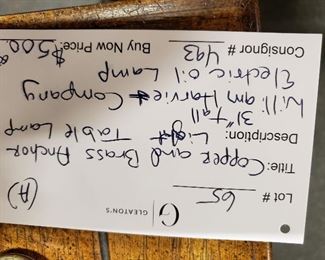 G | GLEATON'S
Lot # 65
(A)
Title: Copper and Brass Anchor
Description: Light Table Lamp
31" tall
William Harvie & Company
Electric oil Lamp
Consignor # 493 Buy Now Price: $500